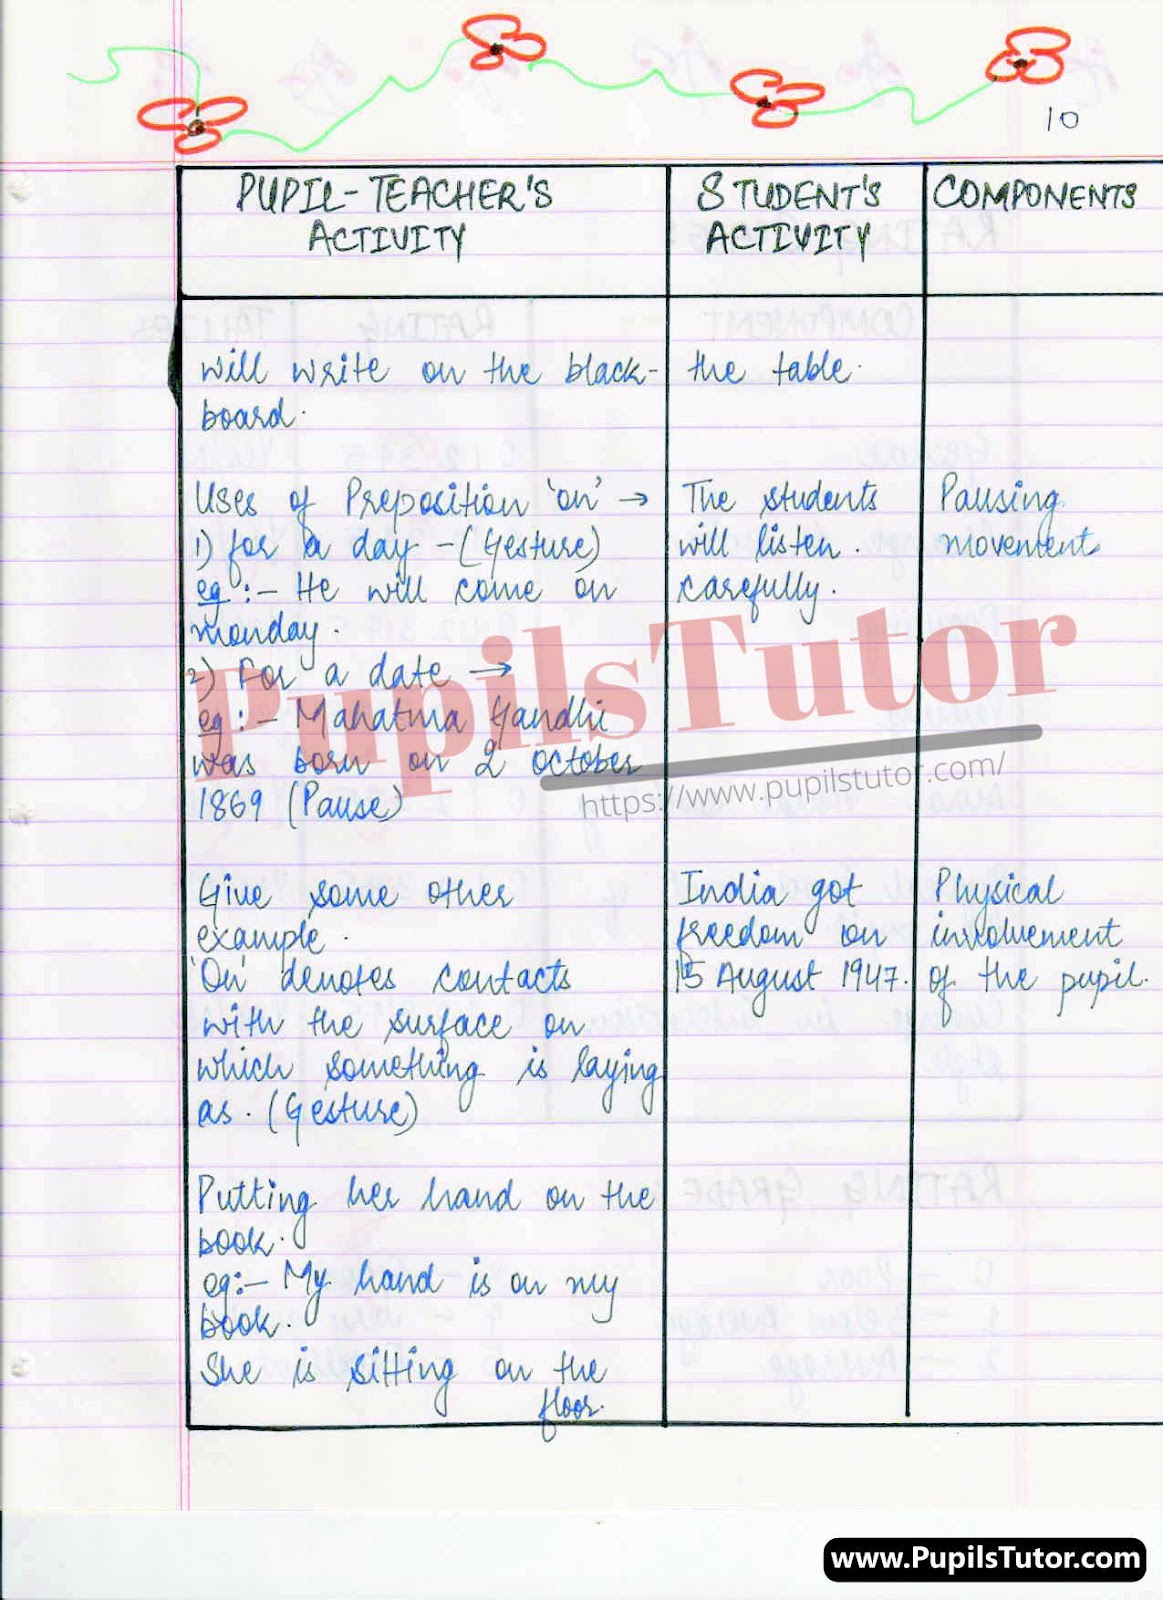 10
PUPIL-TEACHER'S
ACTIVITY
STUDENT'S
ACTIVITY
COMPONENTS
will write on the black-
board.
the table.
Uses of Preposition 'on' →
1) for a day - (Gesture)
eg :- He will come on
monday.
2) For a date →
eg :- Mahatma Gandhi
was born on 2 october
1869 (Pause)
The students
will listen.
carefully.
Pausing
movement
Give some other
example.
'On' denotes contacts
with the surface on
which something is laying
as. (Gesture)
India got
freedom on
15 August 1947.
Physical
involvement
of the pupil.
Putting her hand on the
book.
eg:- My hand is on my
book.
She is sitting on the
floor.
PupilsTutor
https://www.pupilstutor.com/
www.PupilsTutor.com